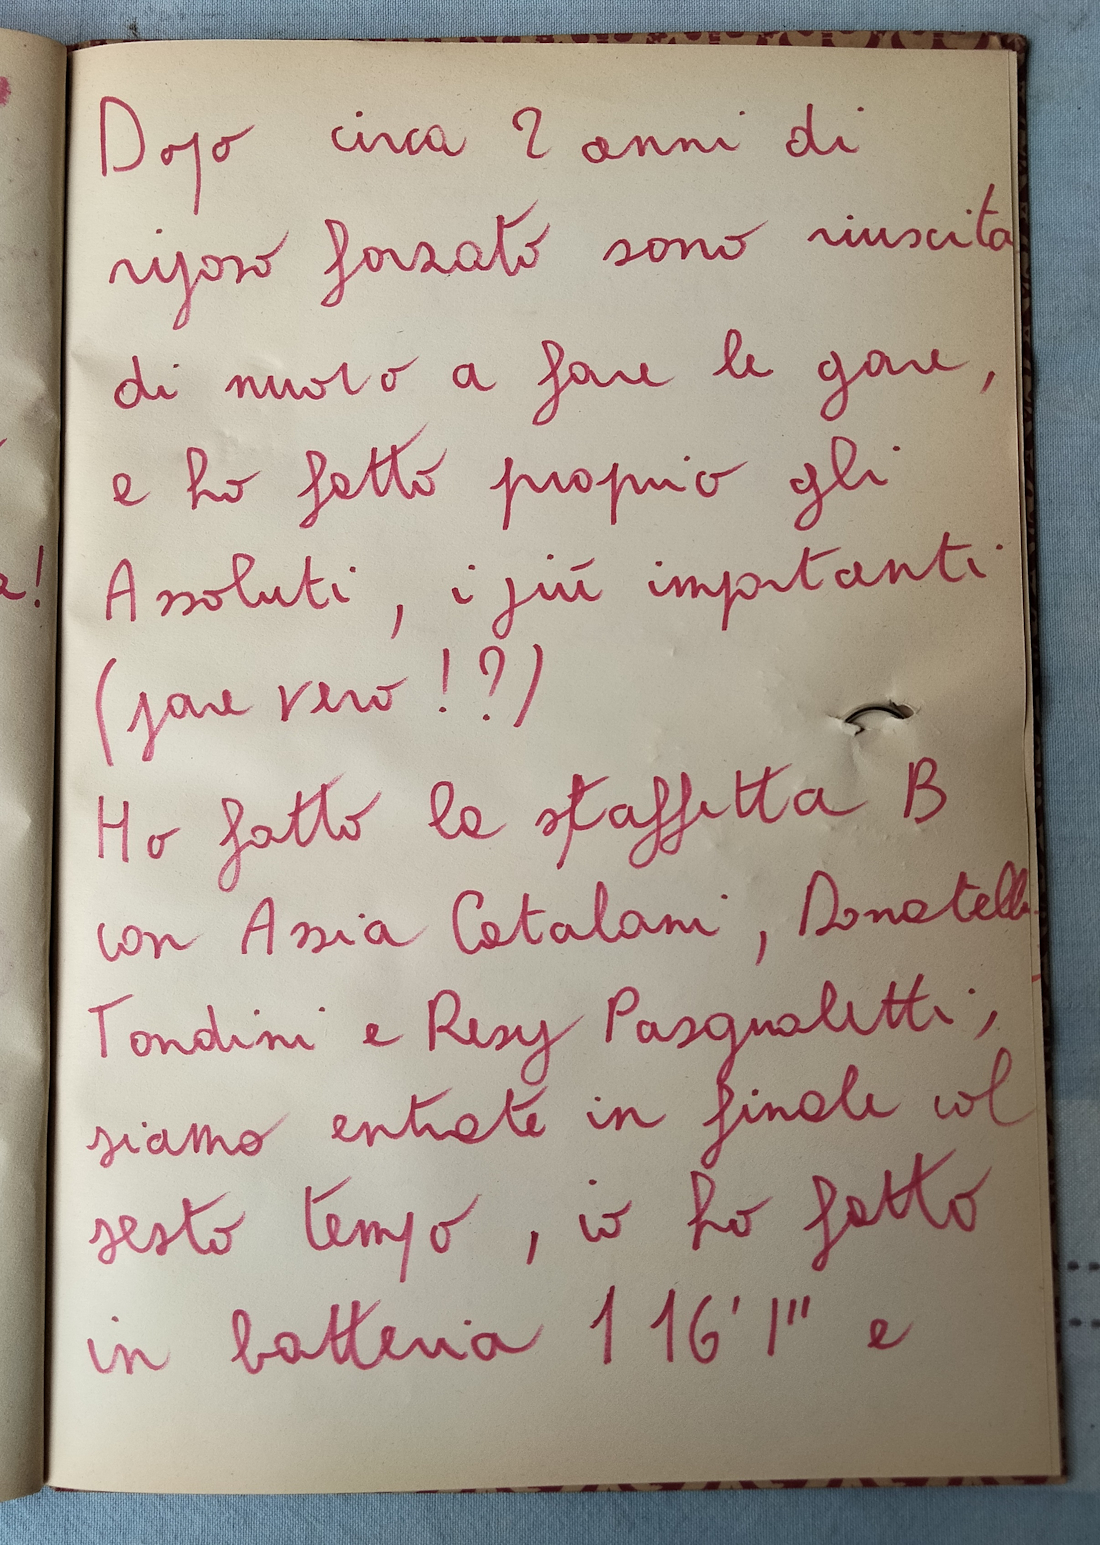 Dopo circa 2 anni di
riposo forzato sono riuscita
di nuovo a fare le gare,
e ho fatto proprio gli
Assoluti, i più importanti
(pare vero!?)
Ho fatto la staffetta B
con Assia Catalani, Donatella
Tondini e Resy Pasqualetti,
siamo entrate in finale col
sesto tempo, io ho fatto
in batteria 1 16' 1''' e
a!